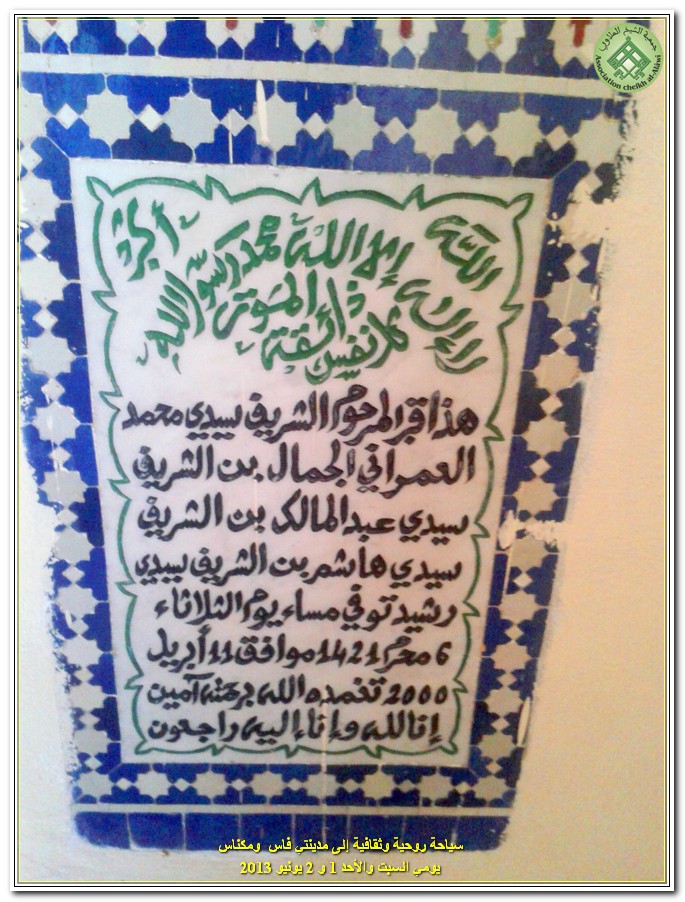 جمعية الشيخ العلاوي
Association cheikh al-Alawi
الله أكبر
لا إله إلا الله محمد رسول الله
كل نفس ذائقة الموت
هذا قبر المرحوم الشريف سيدي محمد
العمراني الجمال بن الشريف
سيدي عبد المالك بن الشريف
سيدي هاشم بن الشريف سيدي
رشيد توفي مساء يوم الثلاثاء
6 محرم 1421 موافق 11 أبريل
2000 تغمده الله برحمته آمين
إنا لله وإنا إليه راجعون
سياحة روحية وثقافية إلى مدينتي فاس ومكناس
يومي السبت والأحد 1 و 2 يونيو 2013